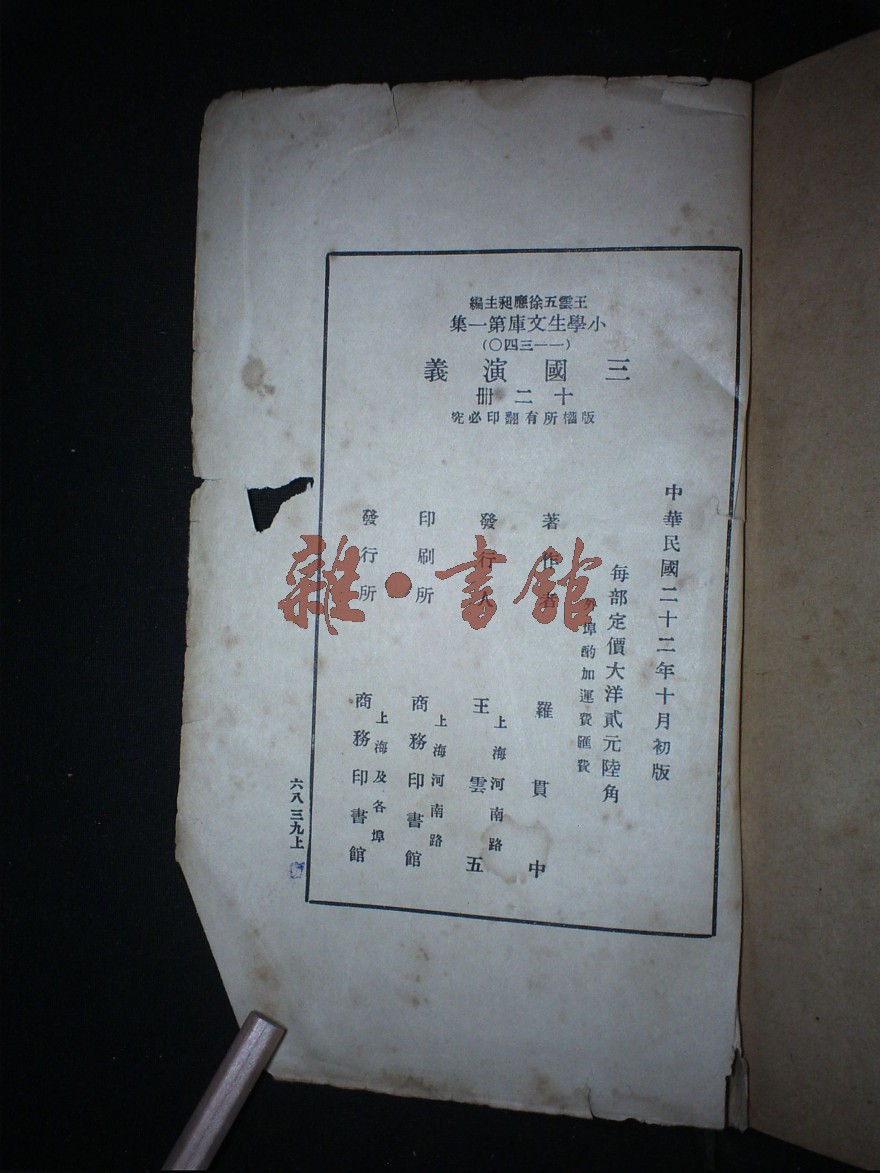 王雲五徐應昶主編
小學生文庫第一集
(一一三四〇)
三國演義
十二冊
版權所有翻印必究
中華民國二十二年十月初版
每部定價大洋貳元陸角
埠酌加運費匯費
著作者
羅貫中
發行人
上海河南路
王雲五
印刷所
上海河南路
商務印書館
發行所
上海及各埠
商務印書館
六八三九上
雜·書館